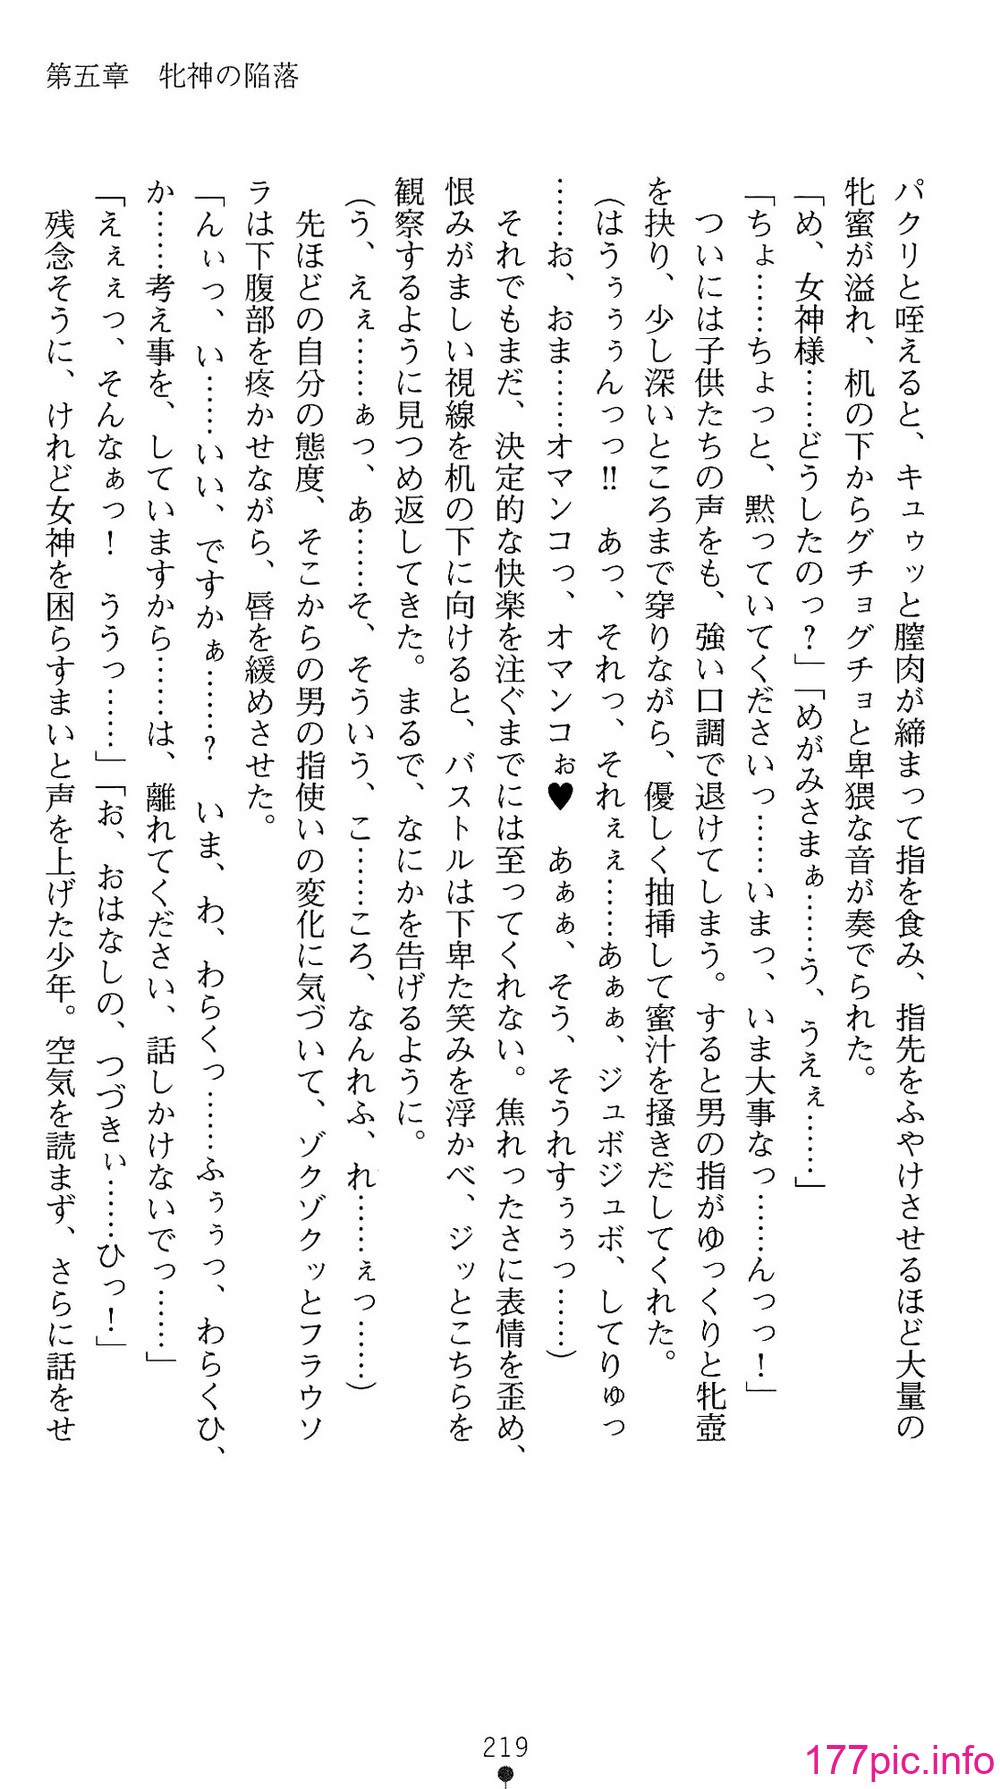 第五章　牝神の陥落
パクリと咥えると、キュゥッと膣肉が締まって指を食み、指先をふやけさせるほど大量の
牝蜜が溢れ、机の下からグチョグチョと卑猥な音が奏でられた。
「め、女神様……どうしたのっ?」「めがみさまぁ……う、うえぇ……」
「ちょ……ちょっと、黙っていてくださいっ……いまっ、いま大事なっ……んっっ！」
　ついには子供たちの声をも、強い口調で退けてしまう。すると男の指がゆっくりと牝壺
を抉り、少し深いところまで穿りながら、優しく抽挿して蜜汁を掻きだしてくれた。
(はうぅぅぅんっっ!!　あっ、それっ、それぇぇ……あぁぁ、ジュボジュボ、してりゅっ
……お、おま……オマンコっ、オマンコぉ♥　あぁぁ、そう、そうれすぅぅっ……)
　それでもまだ、決定的な快楽を注ぐまでには至ってくれない。焦れったさに表情を歪め、
恨みがましい視線を机の下に向けると、バストルは下卑た笑みを浮かべ、ジッとこちらを
観察するように見つめ返してきた。まるで、なにかを告げるように。
(う、えぇ……ぁっ、あ……そ、そういう、こ……ころ、なんれふ、れ……ぇっ……)
　先ほどの自分の態度、そこからの男の指使いの変化に気づいて、ゾクゾクッとフラウソ
ラは下腹部を疼かせながら、唇を緩めさせた。
「んぃっ、い……いい、ですかぁ……?　いま、わ、わらくっ……ふぅぅっ、わらくひ、
か……考え事を、していますから……は、離れてください、話しかけないでっ……」
「えぇぇっ、そんなぁっ！　ううっ……」「お、おはなしの、つづきぃ……ひっ！」
　残念そうに、けれど女神を困らすまいと声を上げた少年。空気を読まず、さらに話をせ
219
177pic.info